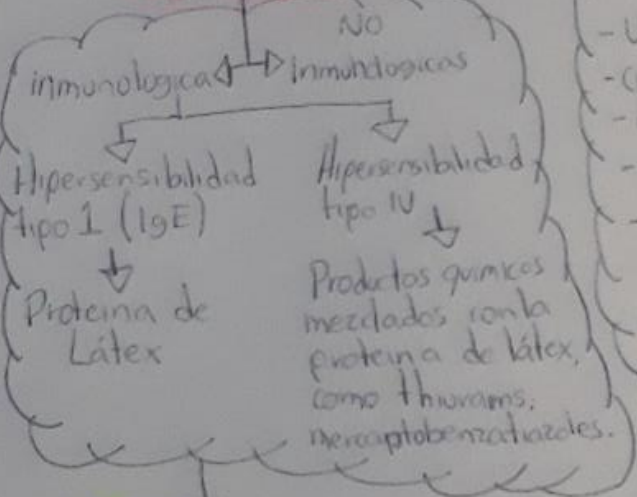 NO
inmunologica Inmunologicas
Hipersensibilidad
tipo 1 (IgE)
Proteina de
Látex
Hipersensibilidad
tipo IV
Productos quimicos
mezclados con la
proteina de látex,
como thiurams,
mercaptobenzatiazoles.